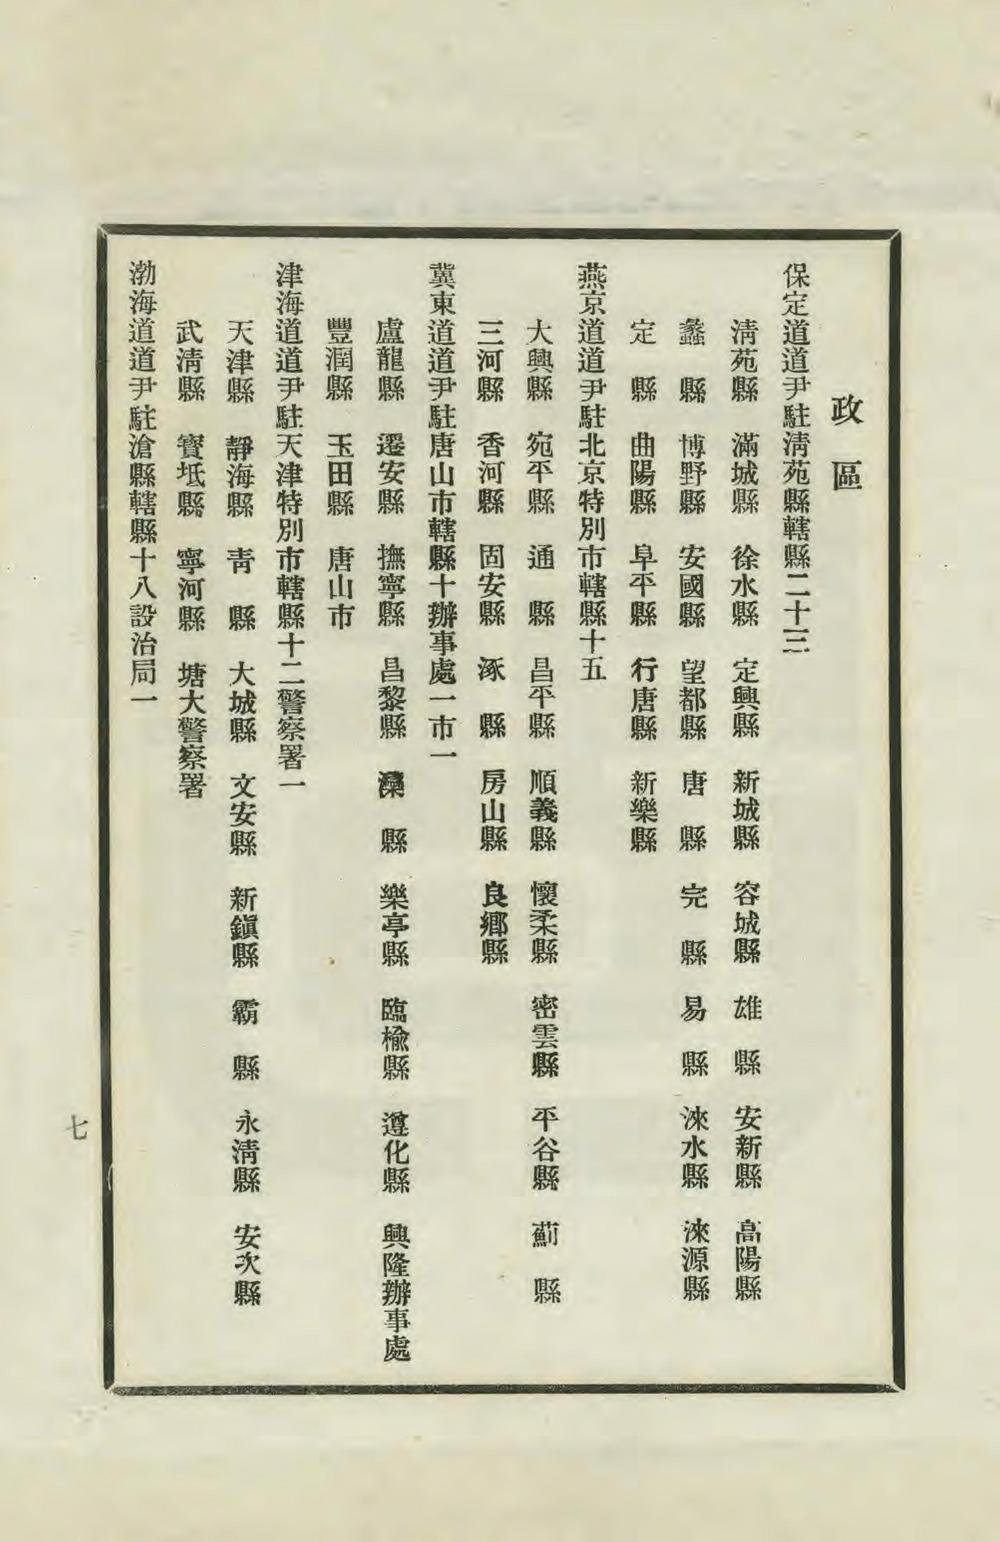 政區
保定道道尹駐淸苑縣轄縣二十三
淸苑縣 滿城縣 徐水縣 定興縣 新城縣 容城縣 雄縣 安新縣 高陽縣
蠡縣 博野縣 安國縣 望都縣 唐縣 完縣 易縣 淶水縣 淶源縣
定縣 曲陽縣 阜平縣 行唐縣 新樂縣
燕京道道尹駐北京特別市轄縣十五
大興縣 宛平縣 通縣 昌平縣 順義縣 懷柔縣 密雲縣 平谷縣 薊縣
三河縣 香河縣 固安縣 涿縣 房山縣 良鄉縣
冀東道道尹駐唐山市轄縣十辦事處一市一
盧龍縣 遷安縣 撫寧縣 昌黎縣 灤縣 樂亭縣 臨楡縣 遵化縣 興隆辦事處
豐潤縣 玉田縣 唐山市
津海道道尹駐天津特別市轄縣十二警察署一
天津縣 靜海縣 靑縣 大城縣 文安縣 新鎭縣 霸縣 永淸縣 安次縣
武淸縣 寶坻縣 寧河縣 塘大警察署
渤海道道尹駐滄縣轄縣十八設治局一
七